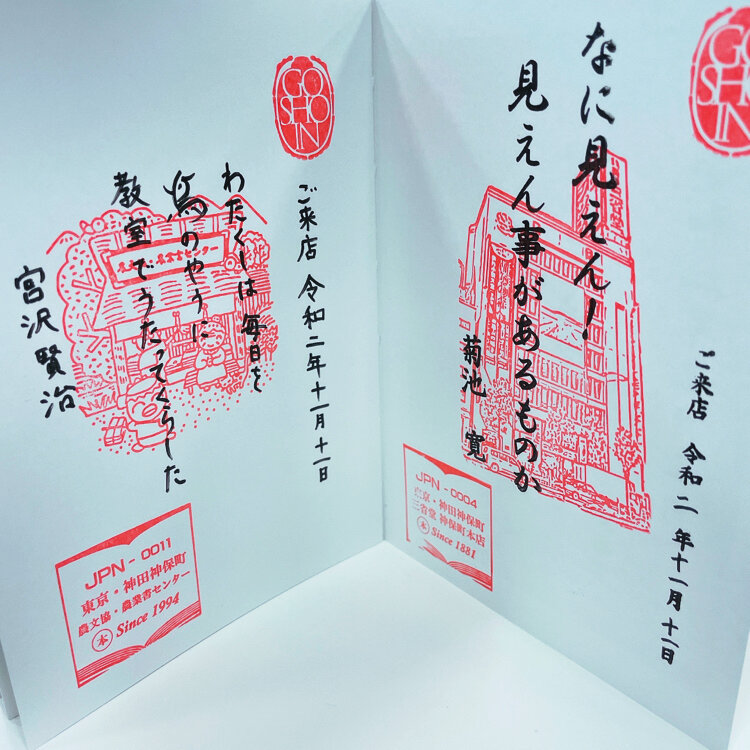 なに見えん！
見えん事があるものか
菊池 寛
ご来店 令和二年十一月十一日
GO
SHO
IN
JPN - 0004
東京・神田神保町
三省堂 神保町本店
本 Since 1881
GO
SHO
IN
ご来店 令和二年十一月十一日
わたくしは毎日を
鳥のやうに
教室でうたってくらした
宮沢賢治
JPN - 0011
東京・神田神保町
農文協・農業書センター
本 Since 1994